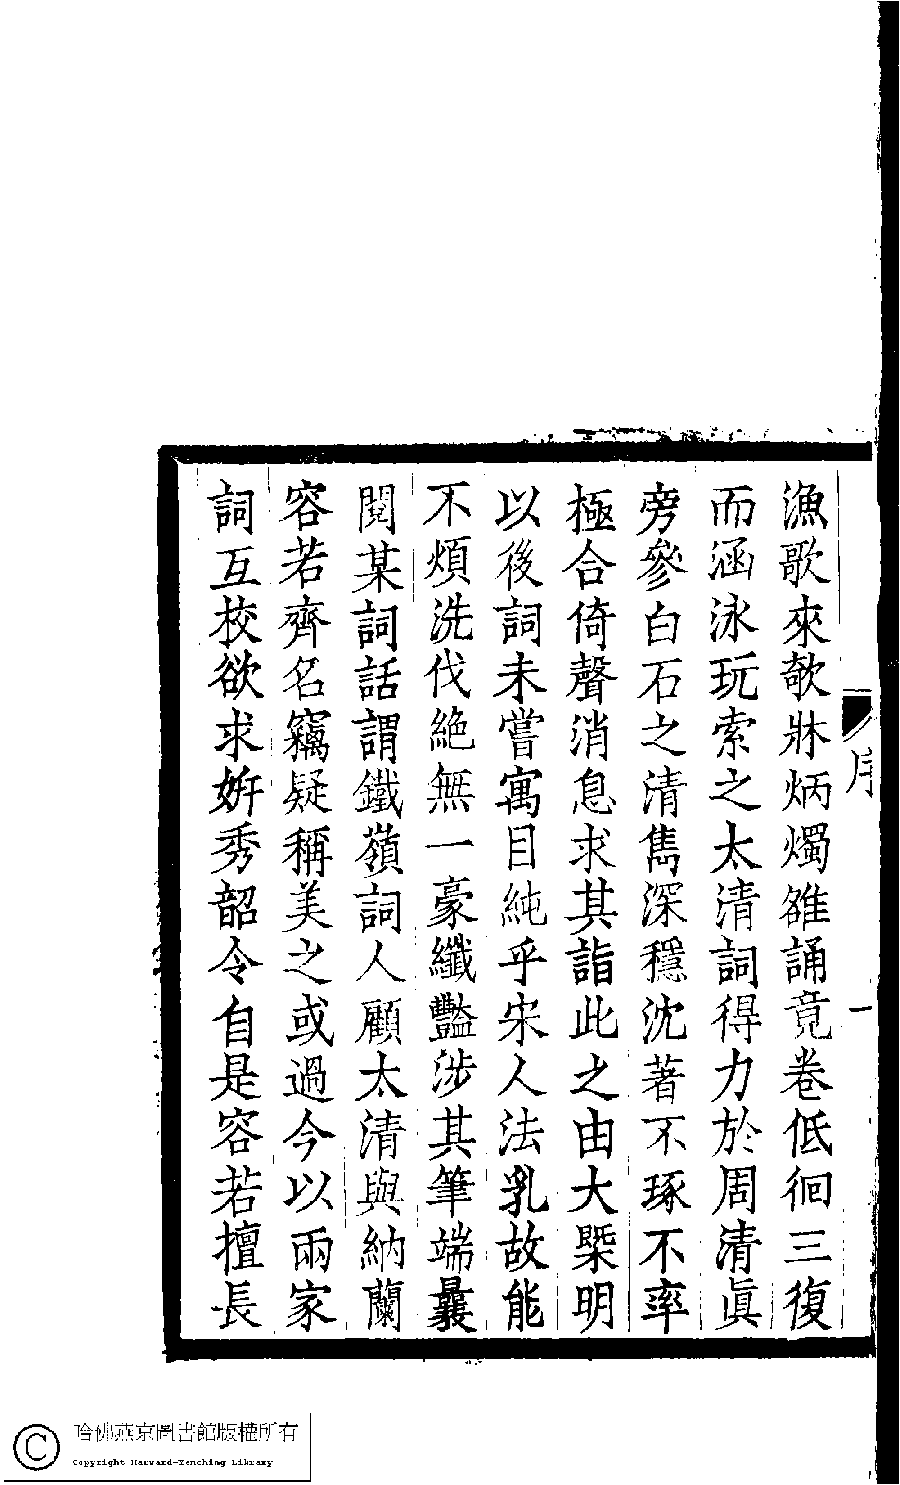 漁歌來欹牀炳燭雒誦竟卷低徊三復
而涵泳玩索之太清詞得力於周清眞
旁參白石之清雋深穩沈著不琢不率
極合倚聲消息求其詣此之由大槩明
以後詞未嘗寓目純乎宋人法乳故能
不煩洗伐絶無一豪纖豔涉其筆端曩
閱某詞話謂鐵嶺詞人顧太清與納蘭
容若齊名竊疑稱美之或過今以兩家
詞互校欲求妍秀韶令自是容若擅長
序
一
哈佛燕京圖書館版權所有
Copyright Harvard-Yenching Library